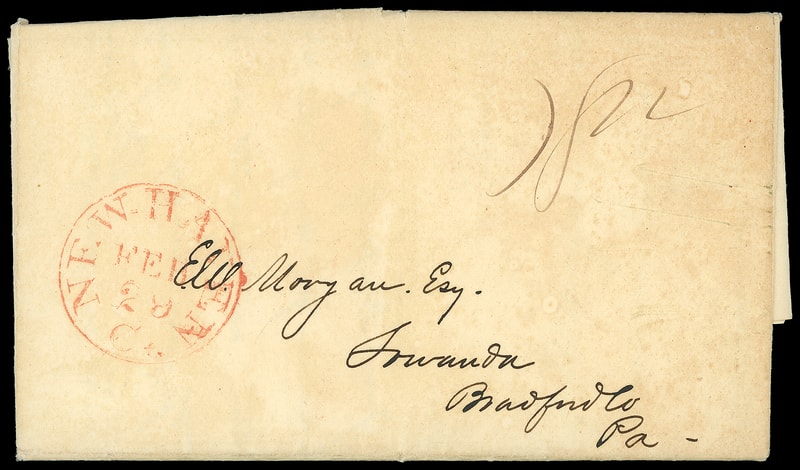 18
NEW-HAVEN
FEB
28
Ct.
E.W. Morgan. Esq.
Towanda
Bradford Co
Pa -